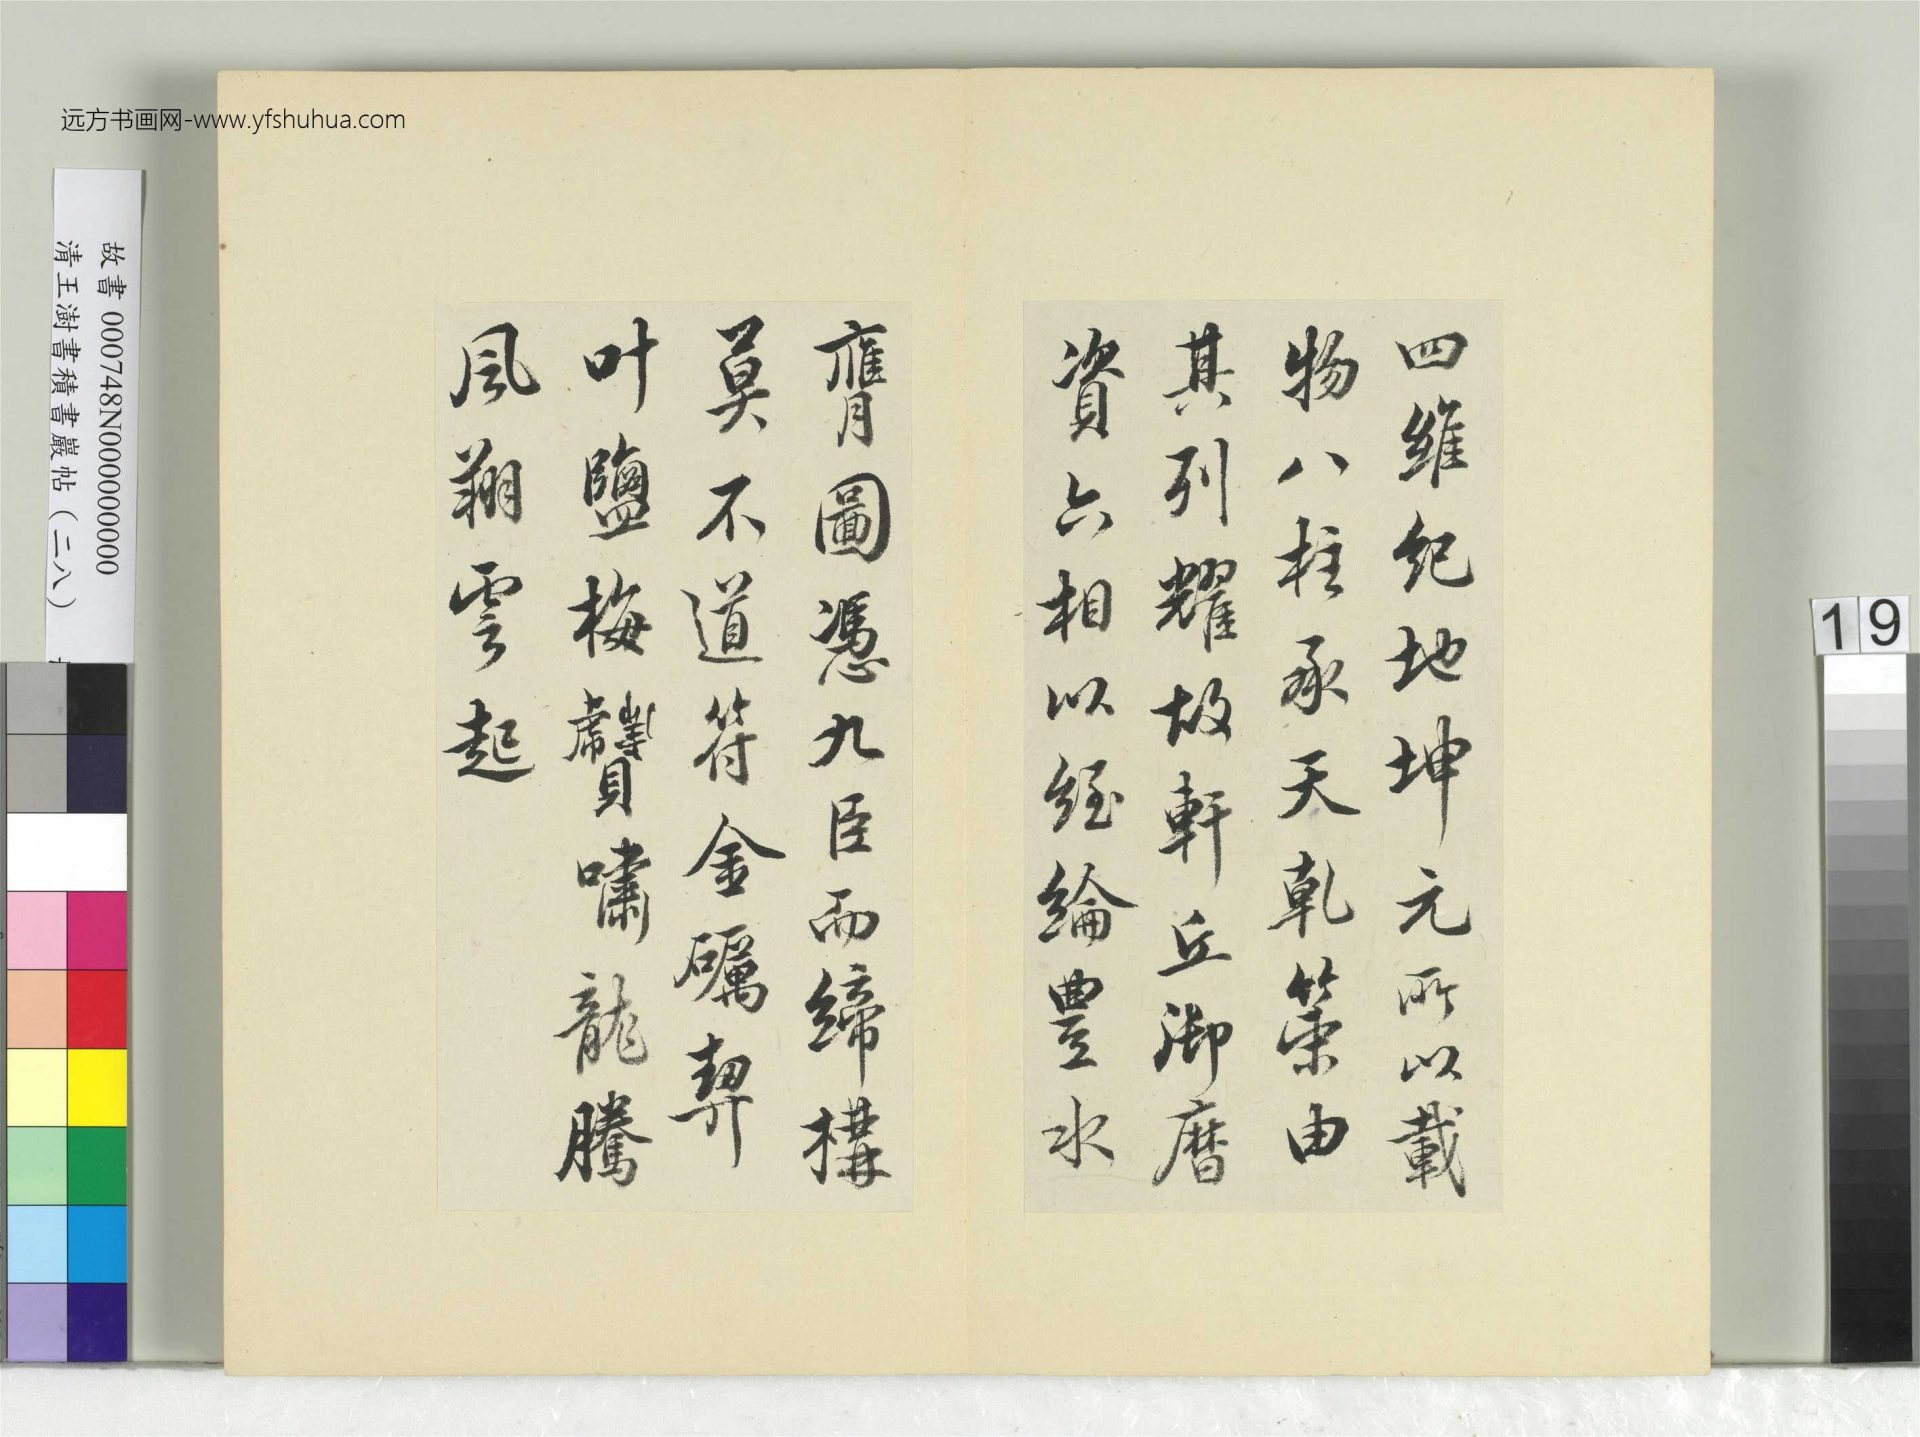 远方书画网-www.yfshuhua.com
四維紀地坤元所以載
物八柱承天乾策由
其列耀故軒丘御曆
資六相以經綸豊水
膺圖憑九臣而締構
莫不道符金礪契
叶鹽梅贙嘯龍騰
風翔雲起
故書 000748N000000000
清王澍書積書巖帖(二八)
19